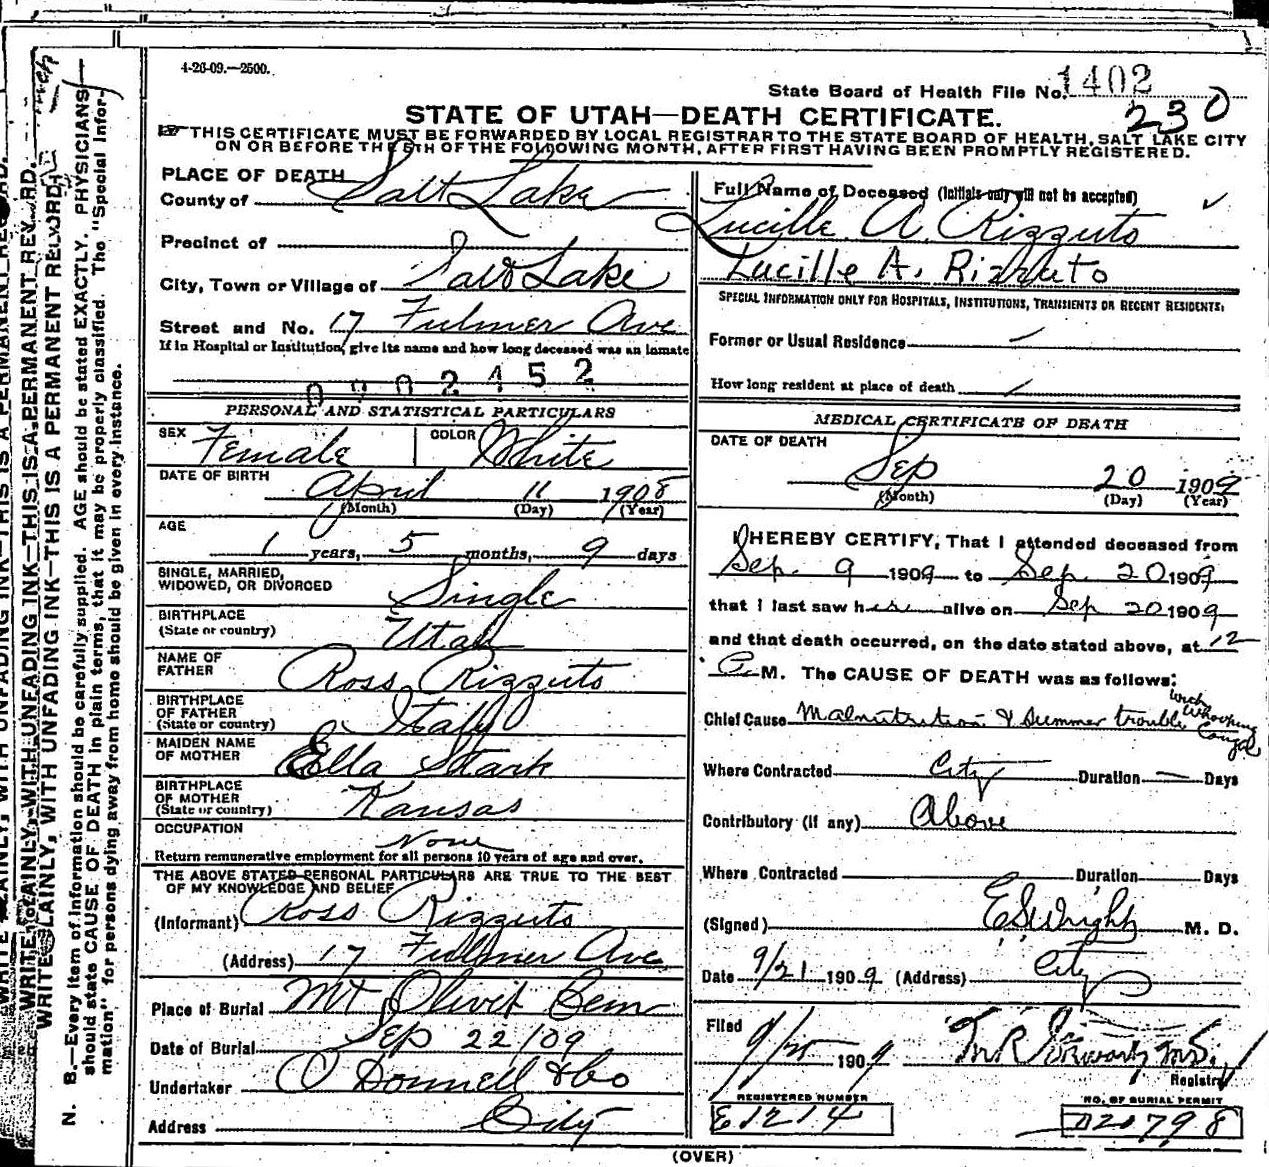 4-26-09.—2500.
State Board of Health File No. 1402
230
STATE OF UTAH—DEATH CERTIFICATE.
THIS CERTIFICATE MUST BE FORWARDED BY LOCAL REGISTRAR TO THE STATE BOARD OF HEALTH, SALT LAKE CITY
ON OR BEFORE THE 5TH OF THE FOLLOWING MONTH, AFTER FIRST HAVING BEEN PROMPTLY REGISTERED.
PLACE OF DEATH
County of Salt Lake
Precinct of
City, Town or Village of Salt Lake
Street and No. 17 Fulmer Ave
If in Hospital or Institution, give its name and how long deceased was an inmate
0902452
PERSONAL AND STATISTICAL PARTICULARS
SEX Female COLOR White
DATE OF BIRTH
April 11 1908
(Month) (Day) (Year)
AGE
1 years, 5 months, 9 days
SINGLE, MARRIED,
WIDOWED, OR DIVORCED Single
BIRTHPLACE
(State or country) Utah
NAME OF
FATHER Ross Rizzuto
BIRTHPLACE
OF FATHER
(State or country) Italy
MAIDEN NAME
OF MOTHER Ella Stark
BIRTHPLACE
OF MOTHER
(State or country) Kansas
OCCUPATION None
Return remunerative employment for all persons 10 years of age and over.
THE ABOVE STATED PERSONAL PARTICULARS ARE TRUE TO THE BEST
OF MY KNOWLEDGE AND BELIEF
(Informant) Ross Rizzuto
(Address) 17 Fulmer Ave
Place of Burial Mt Olivit Cem
Date of Burial Sep 22/09
Undertaker O Donnell & Co
Address City
Full Name of Deceased (Initials only will not be accepted)
Lucille A. Rizzuto
Lucille A. Rizzuto
SPECIAL INFORMATION ONLY FOR HOSPITALS, INSTITUTIONS, TRANSIENTS OR RECENT RESIDENTS:
Former or Usual Residence
How long resident at place of death
MEDICAL CERTIFICATE OF DEATH
DATE OF DEATH
Sep 20 1909
(Month) (Day) (Year)
I HEREBY CERTIFY, That I attended deceased from
Sep. 9 1909 to Sep. 20 1909
that I last saw her alive on Sep 20 1909
and that death occurred, on the date stated above, at 12
A. M. The CAUSE OF DEATH was as follows:
Chief Cause Malnutrition & Summer trouble with Whooping Cough
Where Contracted City Duration — Days
Contributory (if any) Above
Where Contracted Duration Days
(Signed) E S Wright M. D.
Date 9/21 1909 (Address) City
Filed
1909
Registrar
REGISTERED NUMBER
E1214
NO. OF BURIAL PERMIT
D20798
(OVER)
WRITE PLAINLY, WITH UNFADING INK—THIS IS A PERMANENT RECORD.
WRITE PLAINLY, WITH UNFADING INK—THIS IS A PERMANENT RECORD.
WRITE PLAINLY, WITH UNFADING INK—THIS IS A PERMANENT RECORD.
N. B.—Every item of information should be carefully supplied. AGE should be stated EXACTLY. PHYSICIANS
should state CAUSE OF DEATH in plain terms, that it may be properly classified. The "Special Infor-
mation" for persons dying away from home should be given in every instance.